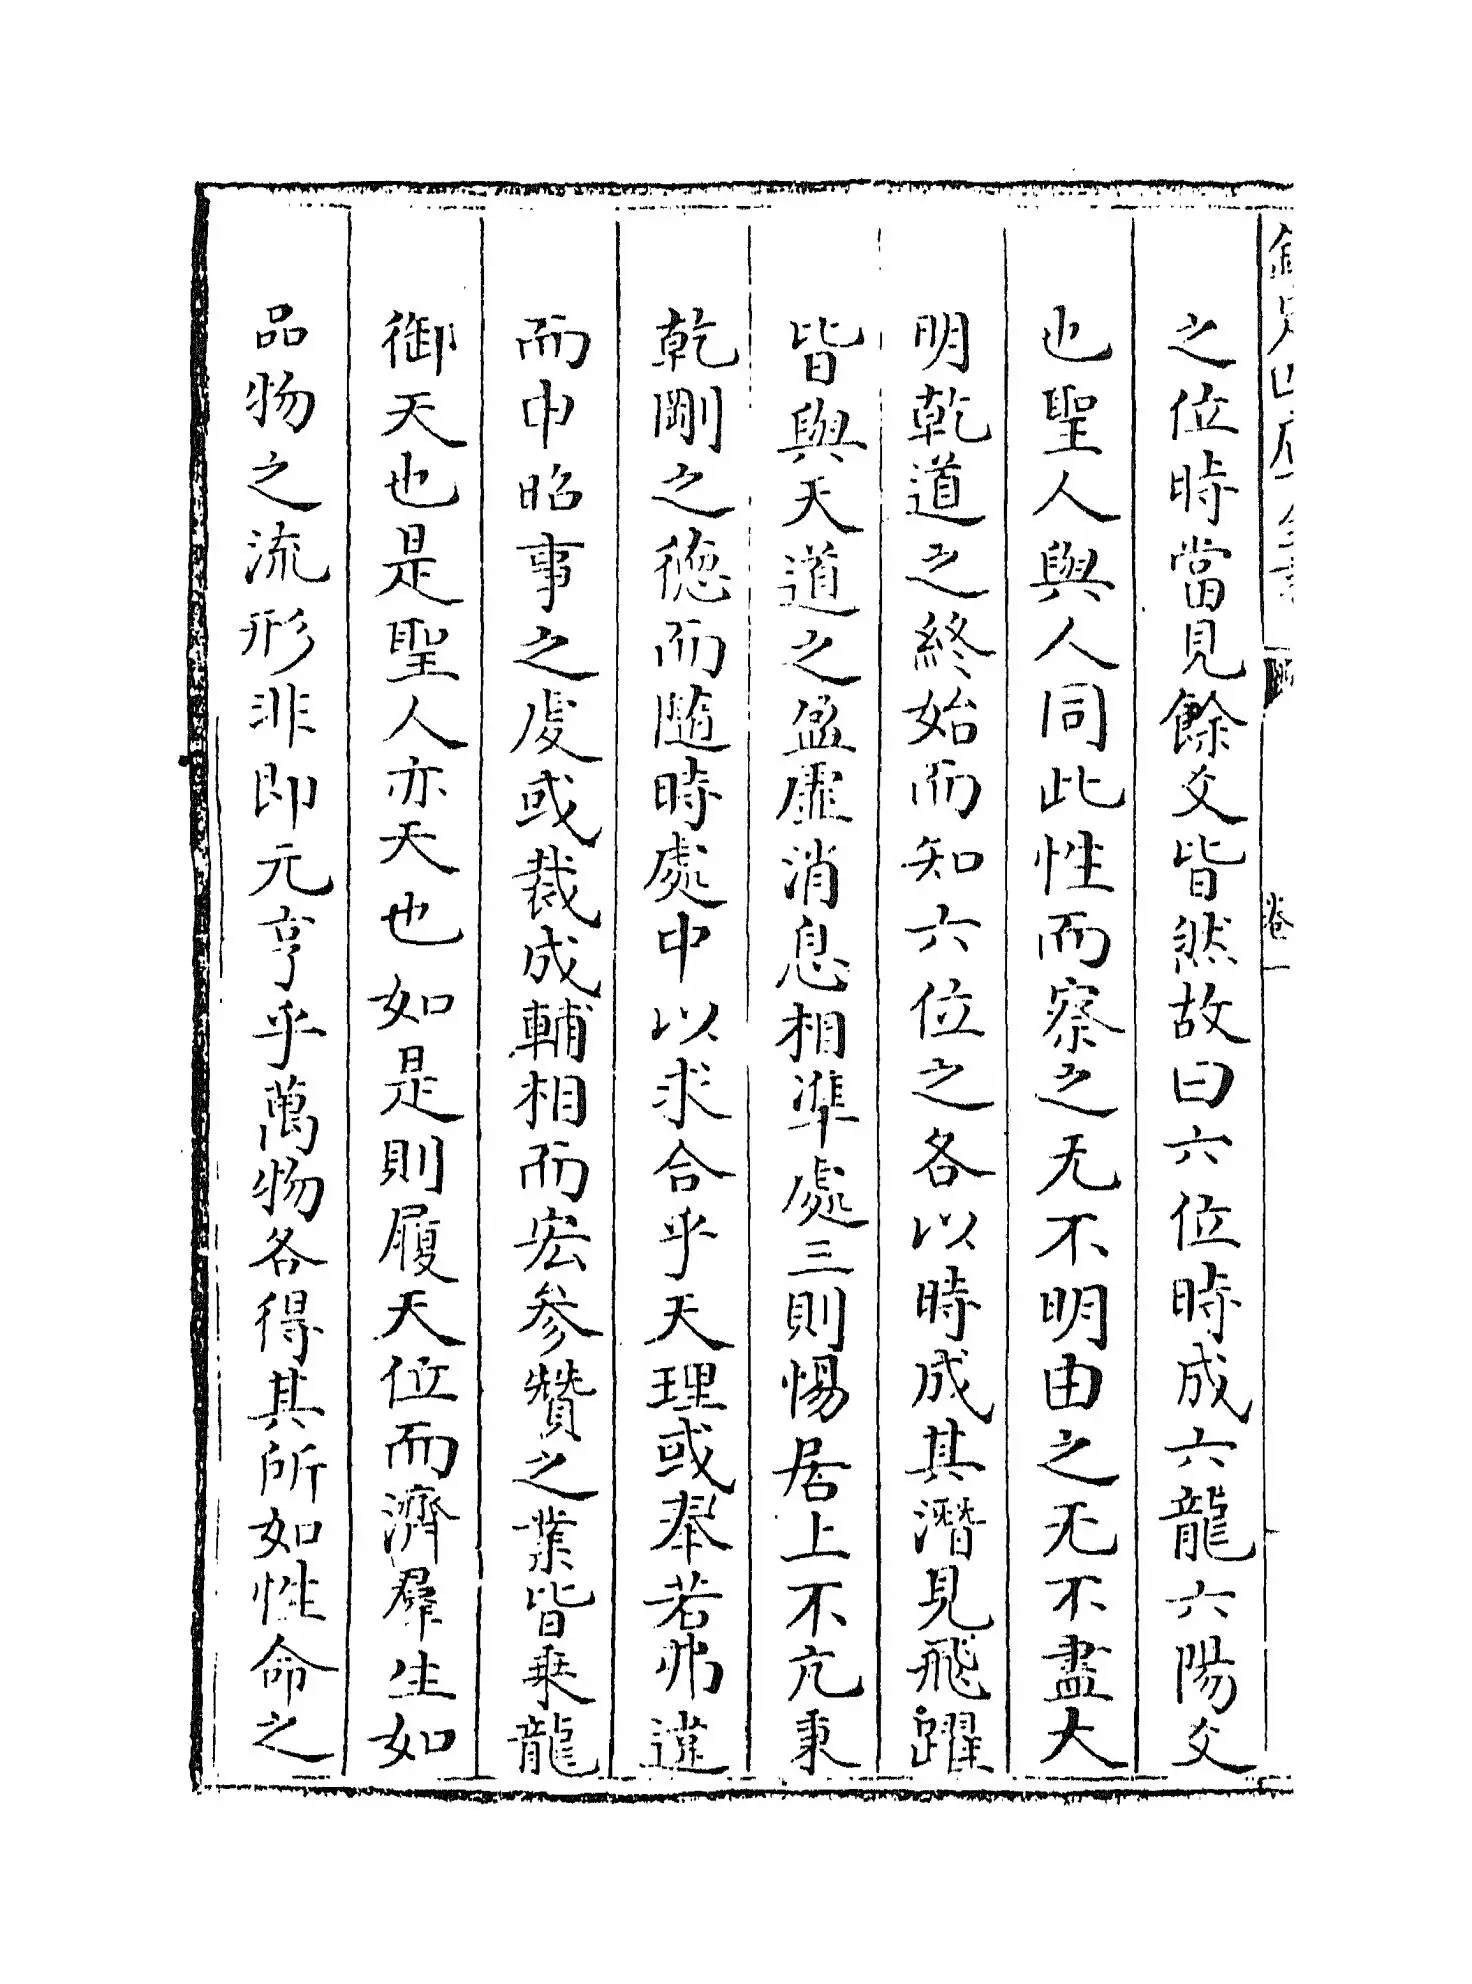 欽定四庫全書　卷一
之位時當見餘爻皆然故曰六位時成六龍六陽爻
也聖人與人同此性而察之无不明由之无不盡大
明乾道之終始而知六位之各以時成其潛見飛躍
皆與天道之盈虛消息相準處三則惕居上不亢秉
乾剛之德而隨時處中以求合乎天理或奉若弗違
而中昭事之虔或裁成輔相而宏參贊之業皆乘龍
御天也是聖人亦天也如是則履天位而濟羣生如
品物之流形非即元亨乎萬物各得其所如性命之